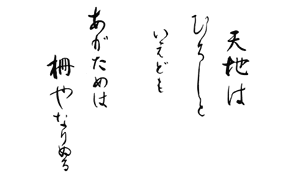 天地は
ひろしと
いえども
あがためは
柵やなりぬる